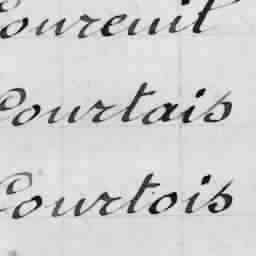 Coureuil
Courtais
Courtois